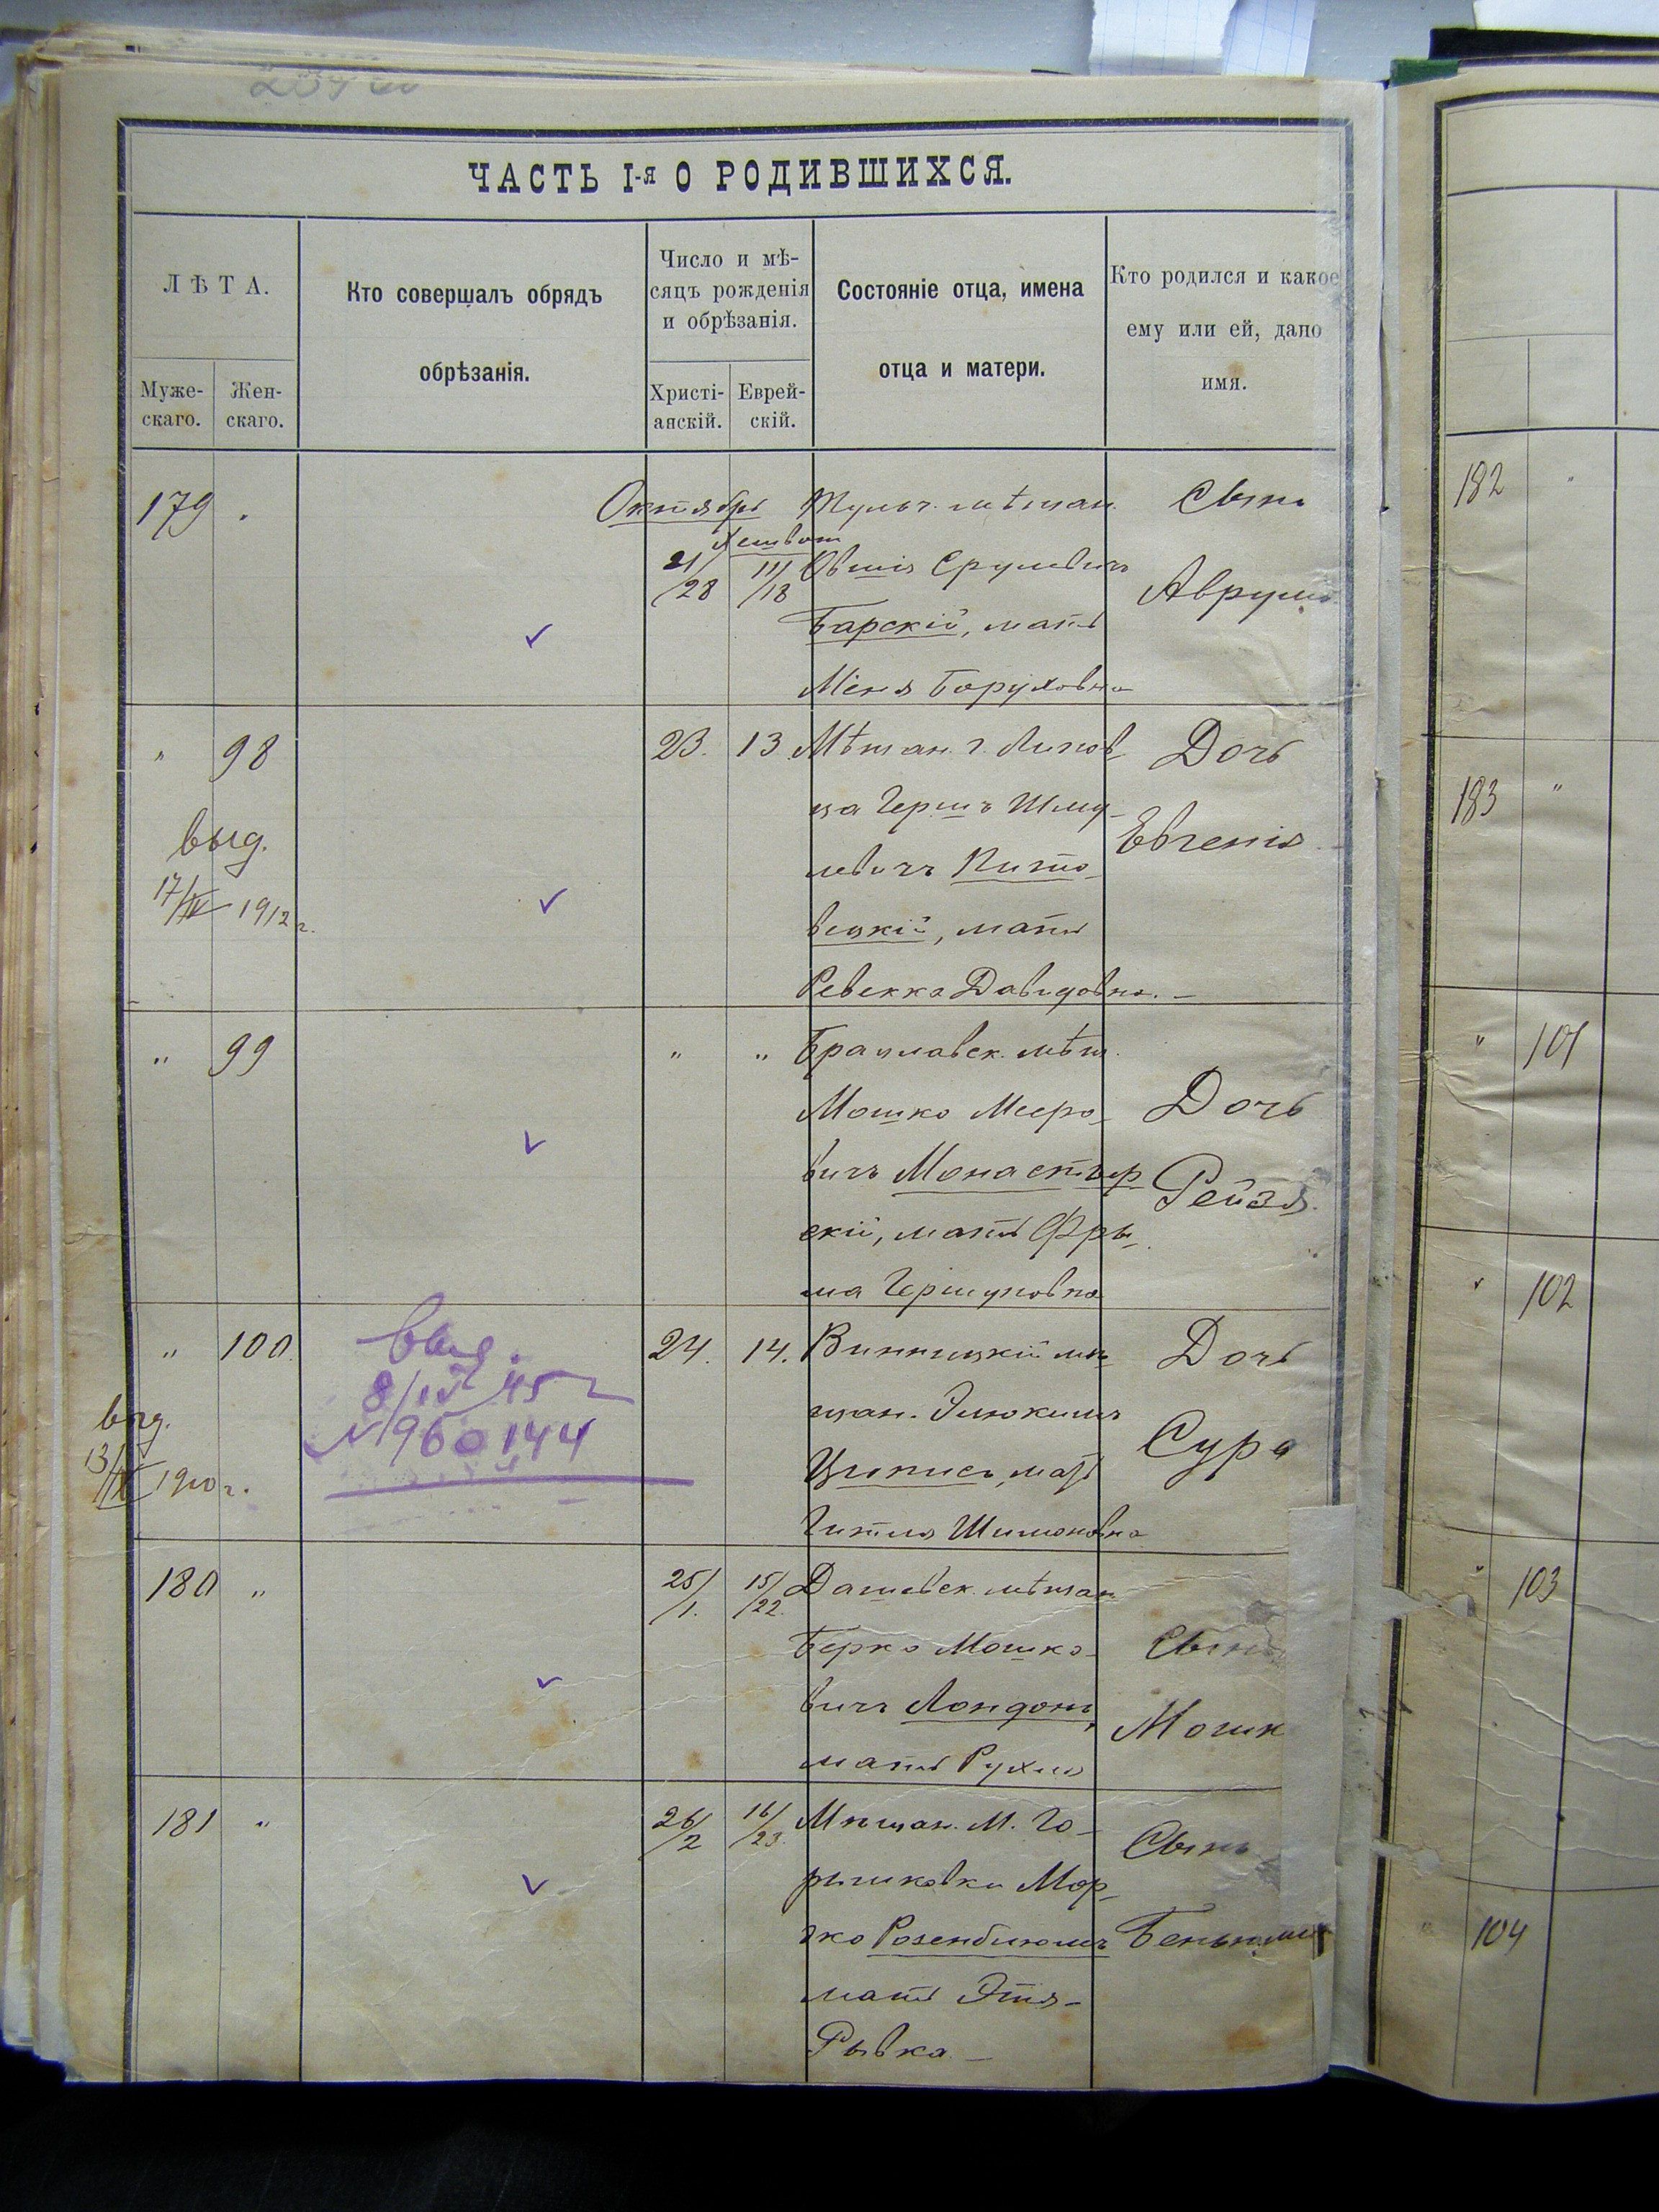 ЧАСТЬ I-я О РОДИВШИХСЯ.
ЛѢТА.
Муже-
скаго.
Жен-
скаго.
Кто совершалъ обрядъ
обрѣзанія.
Число и мѣ-
сяцъ рожденія
и обрѣзанія.
Христі-
анскій.
Еврей-
скій.
Состояніе отца, имена
отца и матери.
Кто родился и какое
ему или ей, дано
имя.
179 "
Октябрь
Хешван
21/28 11/18
Тульч. мѣщан.
Овшія Срулевичъ
Барскій, мать
Меня Боруховна
Сынъ
Аврумъ
" 98
выд.
17/IV 1912 г.
23. 13.
Мѣщан. г. Липов
ца Гершъ Шму-
левичъ
вецкій, мать
Ревекка Давидовна. –
Дочь
Евгенія
" 99
" "
Брацлавск. мѣщ.
Мошко Мееро-
вичъ Монастыр
скій, мать Фры-
ма Гершуновна
Дочь
Рейзя.
" 100.
выд.
13/IX 1910 г.
выд.
8/IV 45 г
N 960144
24. 14.
Винницкій мѣ-
щан. Элюкимъ
мать
Гитля Шимоновна
Дочь
Сура
180 "
25/1. 15/22.
Дашевск. мѣщан
Берко Мошко-
вичъ Лондонъ,
мать Рухля
Сынъ
Мошк
181 "
26/2 16/23.
Мѣщан. М. Го-
рышковки Мор-
тко Розенблюмъ
мать Этя-
Рывка –
Сынъ
Беньюмин
182 "
183 "
" 101
" 102
" 103
" 104